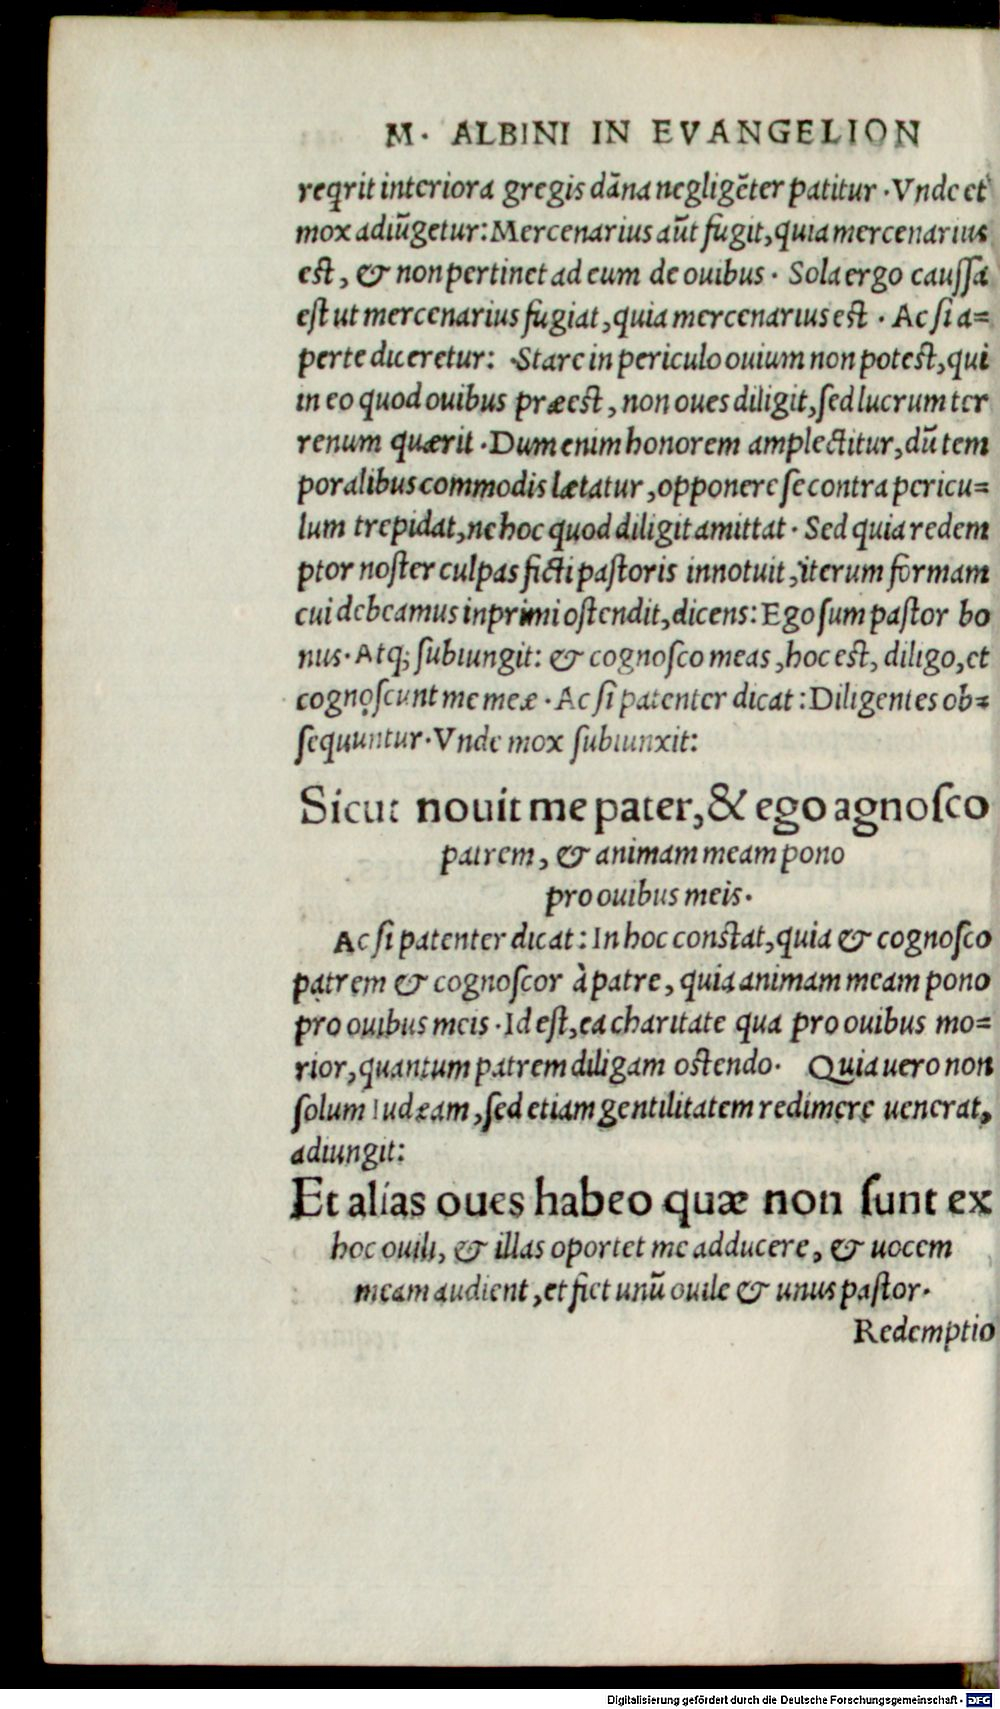 M. ALBINI IN EVANGELION
reqrit interiora gregis dāna negligēter patitur. Vnde et
mox adiūgetur: Mercenarius aūt fugit, quia mercenarius
est, & non pertinet ad eum de ouibus. Sola ergo caussa
est ut mercenarius fugiat, quia mercenarius est. Ac si a=
perte diceretur: Stare in periculo ouium non potest, qui
in eo quod ouibus præest, non oues diligit, sed lucrum ter
renum quærit. Dum enim honorem amplectitur, dū tem
poralibus commodis lætatur, opponere se contra pericu=
lum trepidat, ne hoc quod diligit amittat. Sed quia redem
ptor noster culpas ficti pastoris innotuit, iterum formam
cui debeamus inprimi ostendit, dicens: Ego sum pastor bo
nus. Atq; subiungit: & cognosco meas, hoc est, diligo, et
cognoscunt me meæ. Ac si patenter dicat: Diligentes ob=
sequuntur. Vnde mox subiunxit:
Sicut nouit me pater, & ego agnosco
patrem, & animam meam pono
pro ouibus meis.
Ac si patenter dicat: In hoc constat, quia & cognosco
patrem & cognoscor à patre, quia animam meam pono
pro ouibus meis. Id est, ea charitate qua pro ouibus mo=
rior, quantum patrem diligam ostendo. Quia uero non
solum Iudæam, sed etiam gentilitatem redimere uenerat,
adiungit:
Et alias oues habeo quæ non sunt ex
hoc ouili, & illas oportet me adducere, & uocem
meam audient, et fiet unū ouile & unus pastor.
Redemptio
Digitalisierung gefördert durch die Deutsche Forschungsgemeinschaft - DFG